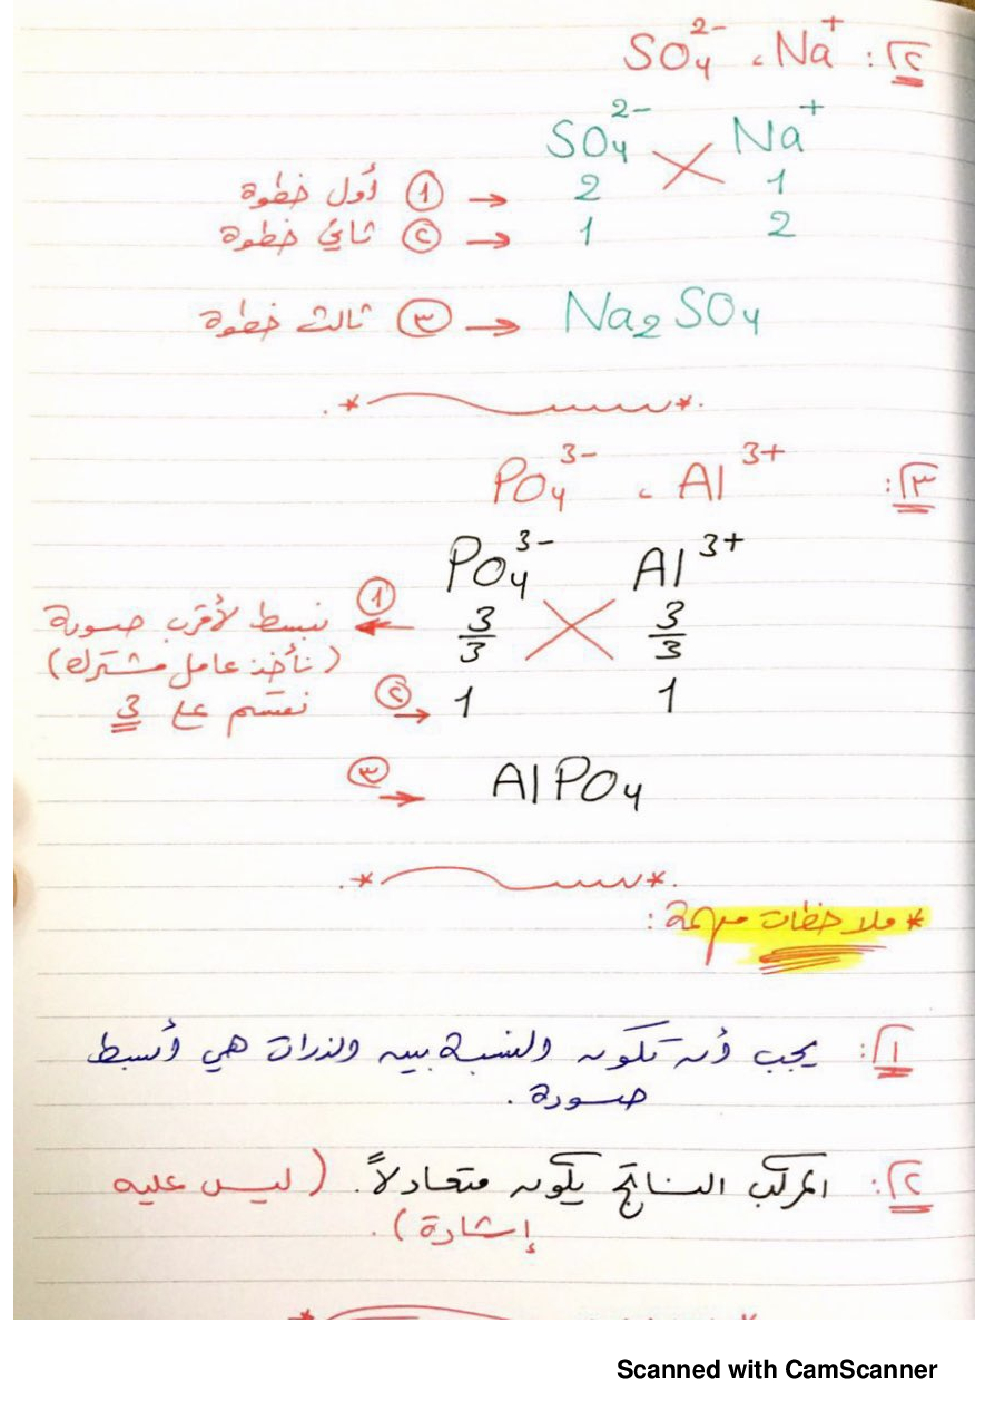 ٢: Na⁺ ، SO₄²⁻
SO₄²⁻ Na⁺
أول خطوة ① → 2 1
ثاني خطوة ② → 1 2
ثالث خطوة ③ → Na₂SO₄
٣: Al³⁺ ، PO₄³⁻
PO₄³⁻ Al³⁺
① نبسط لأقرب صورة ← 3/3 3/3
(نأخذ عامل مشترك)
نقسم على 3 ② → 1 1
③ → AlPO₄
* ملاحظات مهمة:
١: يجب أن تكون النسبة بين الذرات هي أبسط
صورة.
٢: المركب الناتج يكون متعادلاً. (ليس عليه
إشارة).
Scanned with CamScanner